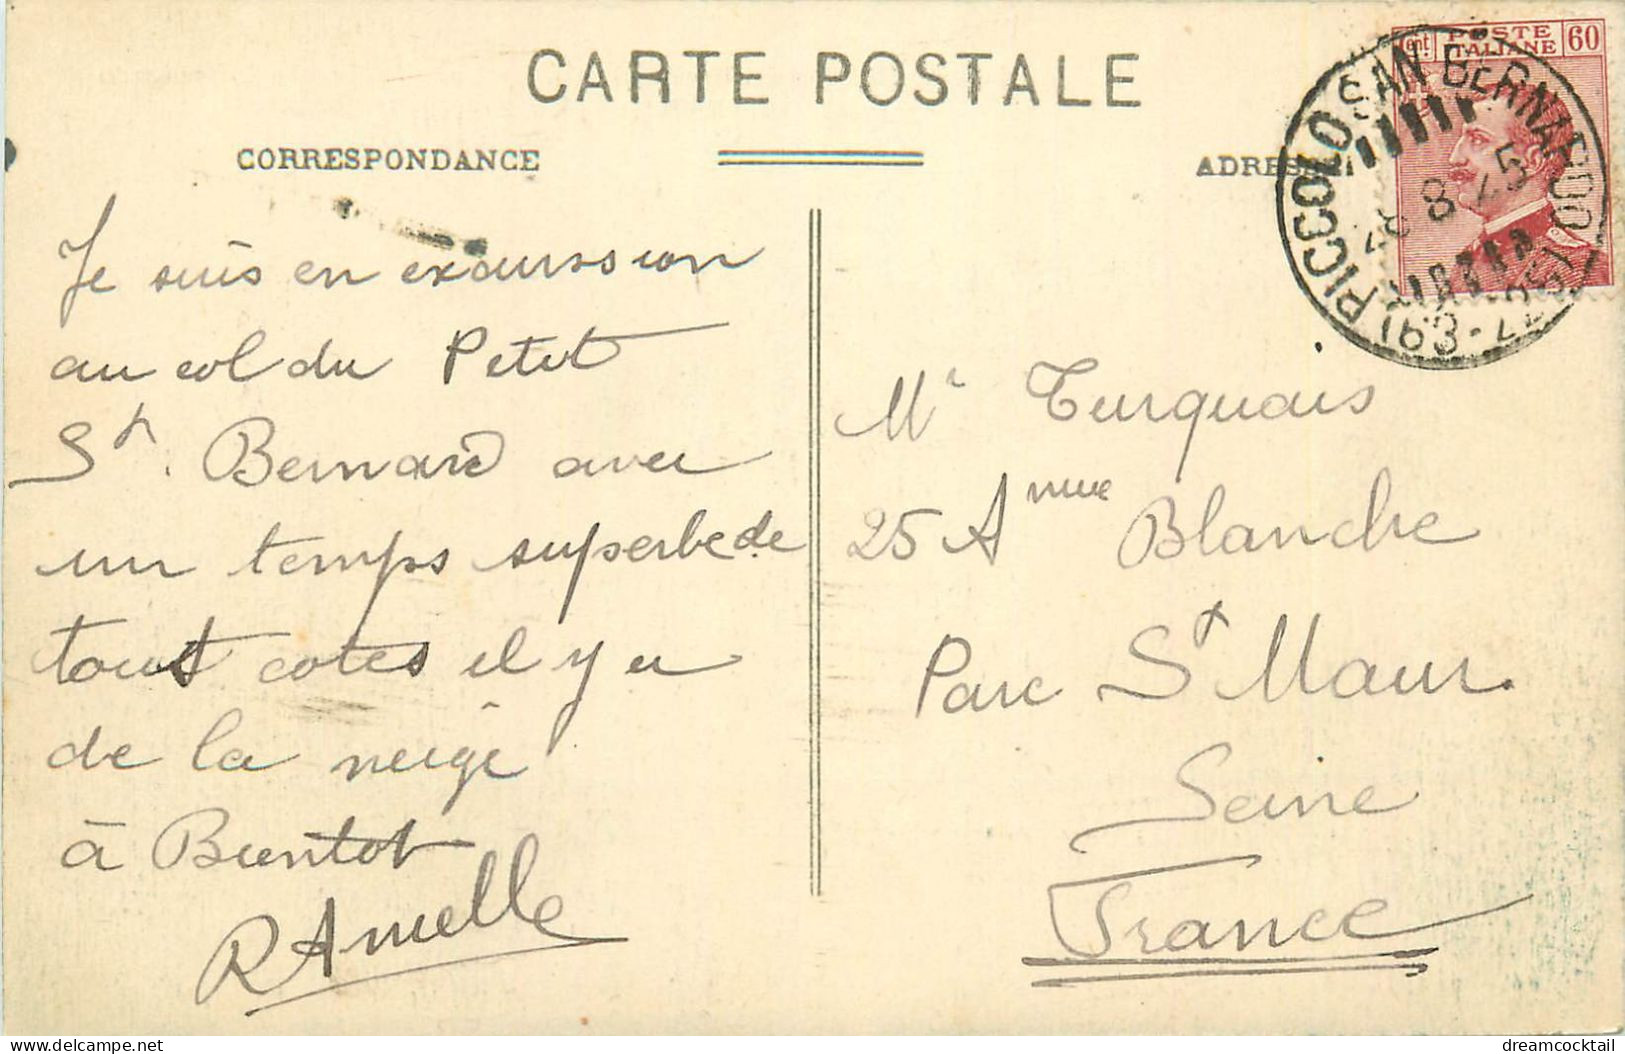 CARTE POSTALE
CORRESPONDANCE
Je suis en excurssion
au col du Petit
St. Bernard avec
un temps superbe de
tout cotes il y a
de la neige
à Bientot
RAmelle
ADRESSE
Mr Turquais
25 Anue Blanche
Parc St Maur.
Seine
France
Cent POSTE ITALIANE 60
PICCOLO SAN BERNARDO
28 8 25
delcampe.net
dreamcocktail